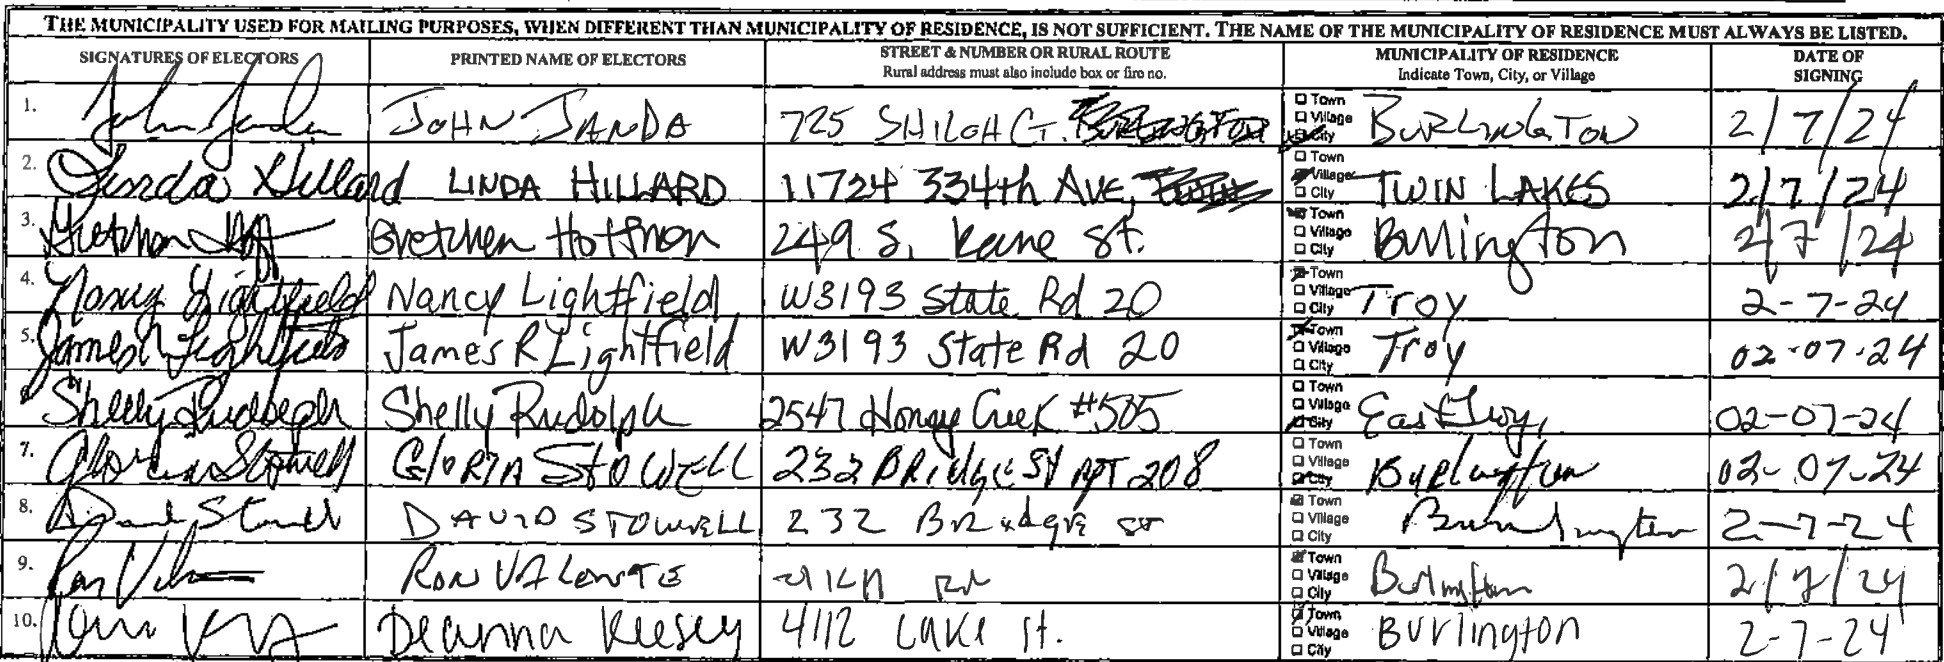 THE MUNICIPALITY USED FOR MAILING PURPOSES, WHEN DIFFERENT THAN MUNICIPALITY OF RESIDENCE, IS NOT SUFFICIENT. THE NAME OF THE MUNICIPALITY OF RESIDENCE MUST ALWAYS BE LISTED.
SIGNATURES OF ELECTORS PRINTED NAME OF ELECTORS STREET & NUMBER OR RURAL ROUTE MUNICIPALITY OF RESIDENCE DATE OF
Rural address must also include box or fire no. Indicate Town, City, or Village SIGNING
1. JOHN JANDA 725 SHILOH CT. BURLINGTON Town Village City BURLINGTON 2/7/24
2. Linda Hillard LINDA HILLARD 11724 334th AVE, Town Village City TWIN LAKES 2/7/24
3. Gretchen Gretchen Hoffman 249 S. Kane St. Town Village City Burlington 2/7/24
4. Nancy Lightfield Nancy Lightfield W3193 State Rd 20 Town Village City Troy 2-7-24
5. James Lightfield James R Lightfield W3193 State Rd 20 Town Village City Troy 02-07-24
Shelly Rudolph Shelly Rudolph 2547 Honey Creek #505 Town Village City East Troy, 02-07-24
7. Gloria Stowell GlORIA STOWELL 232 BRidgE St APT 208 Town Village City Burlington 02-07-24
8. DAVID STOWELL 232 Town Village City Burlington 2-7-24
9. RON Town Village City Burlington 2/7/24
10. Deanna Keesey 4112 Lake St. Town Village City Burlington 2-7-24